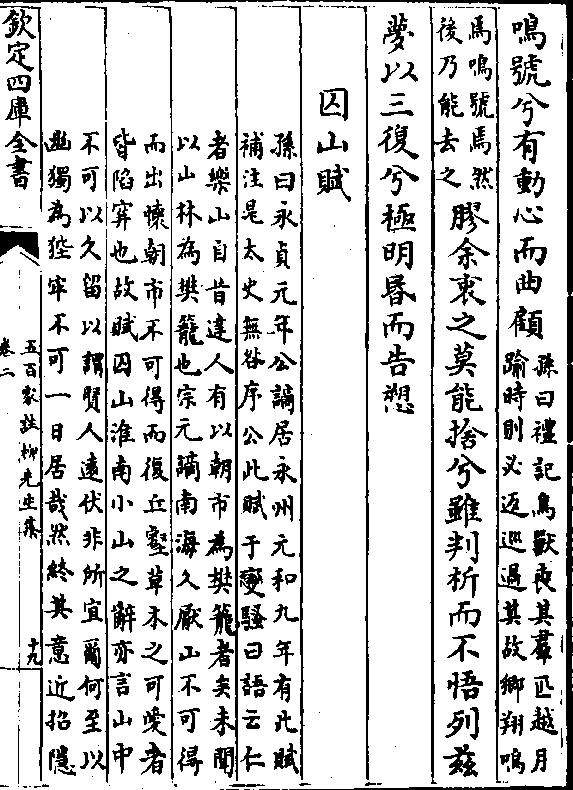 鳴號兮有動心而曲顧孫曰禮記鳥獸喪其羣匹越月
踰時則必返巡過其故鄉翔鳴
焉鳴號焉然
後乃能去之膠余衷之莫能捨兮雖判析而不悟列茲
夢以三復兮極明昬而告愬
囚山賦
孫曰永貞元年公謫居永州元和九年有此賦
補注晁太史無咎序公此賦于變騷曰語云仁
者樂山自昔達人有以朝市為樊籠者矣未聞
以山林為樊籠也宗元謫南海久厭山不可得
而出懷朝市不可得而復丘壑草木之可愛者
皆陷穽也故賦囚山淮南小山之辭亦言山中
不可以久留以謂賢人遠伏非所宜爾何至以
幽獨為狴牢不可一日居哉然終其意近招隱
欽定四庫全書
五百家註柳先生集
卷二
十九